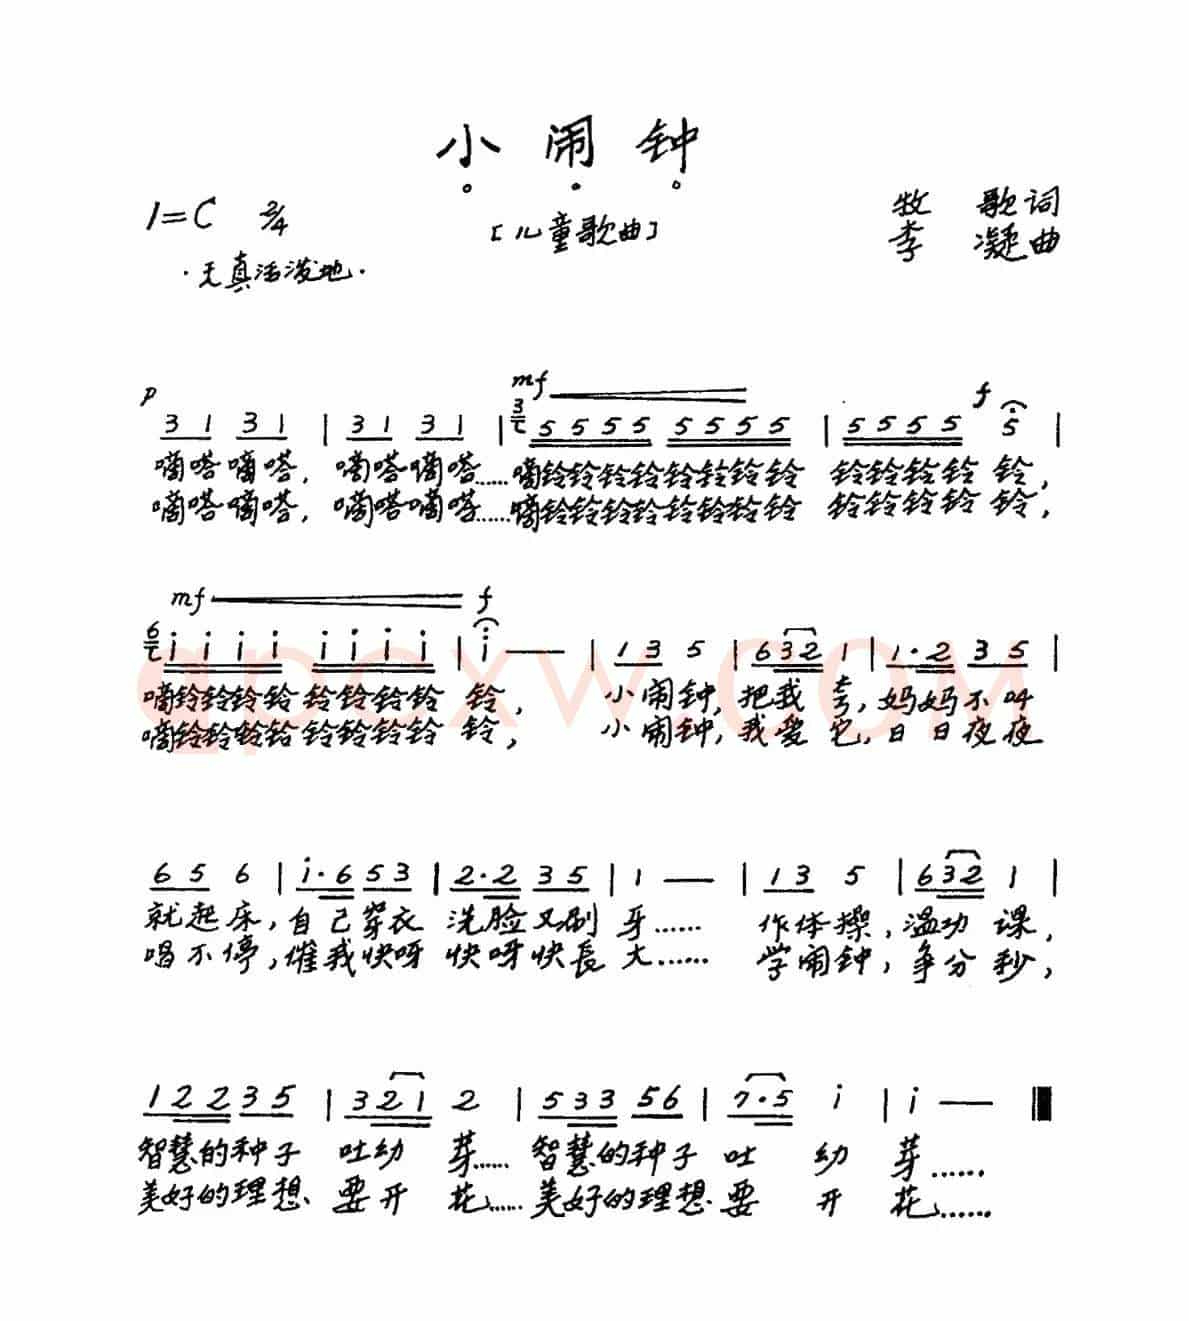 小闹钟
1=C 2/4
[儿童歌曲]
牧 歌词
李 凝曲
·天真活泼地·
p mf f
3 1 3 1 | 3 1 3 1 | 5 5 5 5 5 5 5 5 | 5 5 5 5 5 |
嘀嗒嘀嗒，嘀嗒嘀嗒……嘀铃铃铃铃铃铃铃铃 铃铃铃铃 铃，
嘀嗒嘀嗒，嘀嗒嘀嗒……嘀铃铃铃铃铃铃铃铃 铃铃铃铃 铃，
mf f
i i i i i i i i | i — | 1 3 5 | 6 3 2 1 | 1·2 3 5 |
嘀铃铃铃铃 铃铃铃铃 铃，小闹钟，把我夸，妈妈不叫
嘀铃铃铃铃 铃铃铃铃 铃，小闹钟，我爱它，日日夜夜
6 5 6 | i·6 5 3 | 2·2 3 5 | 1 — | 1 3 5 | 6 3 2 1 |
就起床，自己穿衣 洗脸又刷牙…… 作体操，温功课，
唱不停，催我快呀 快呀快長大…… 学闹钟，争分秒，
1 2 2 3 5 | 3 2 1 2 | 5 3 3 5 6 | 7·5 i | i — ‖
智慧的种子 吐幼芽……智慧的种子 吐 幼 芽……
美好的理想、要开花……美好的理想、要 开 花……
qpcxw.com